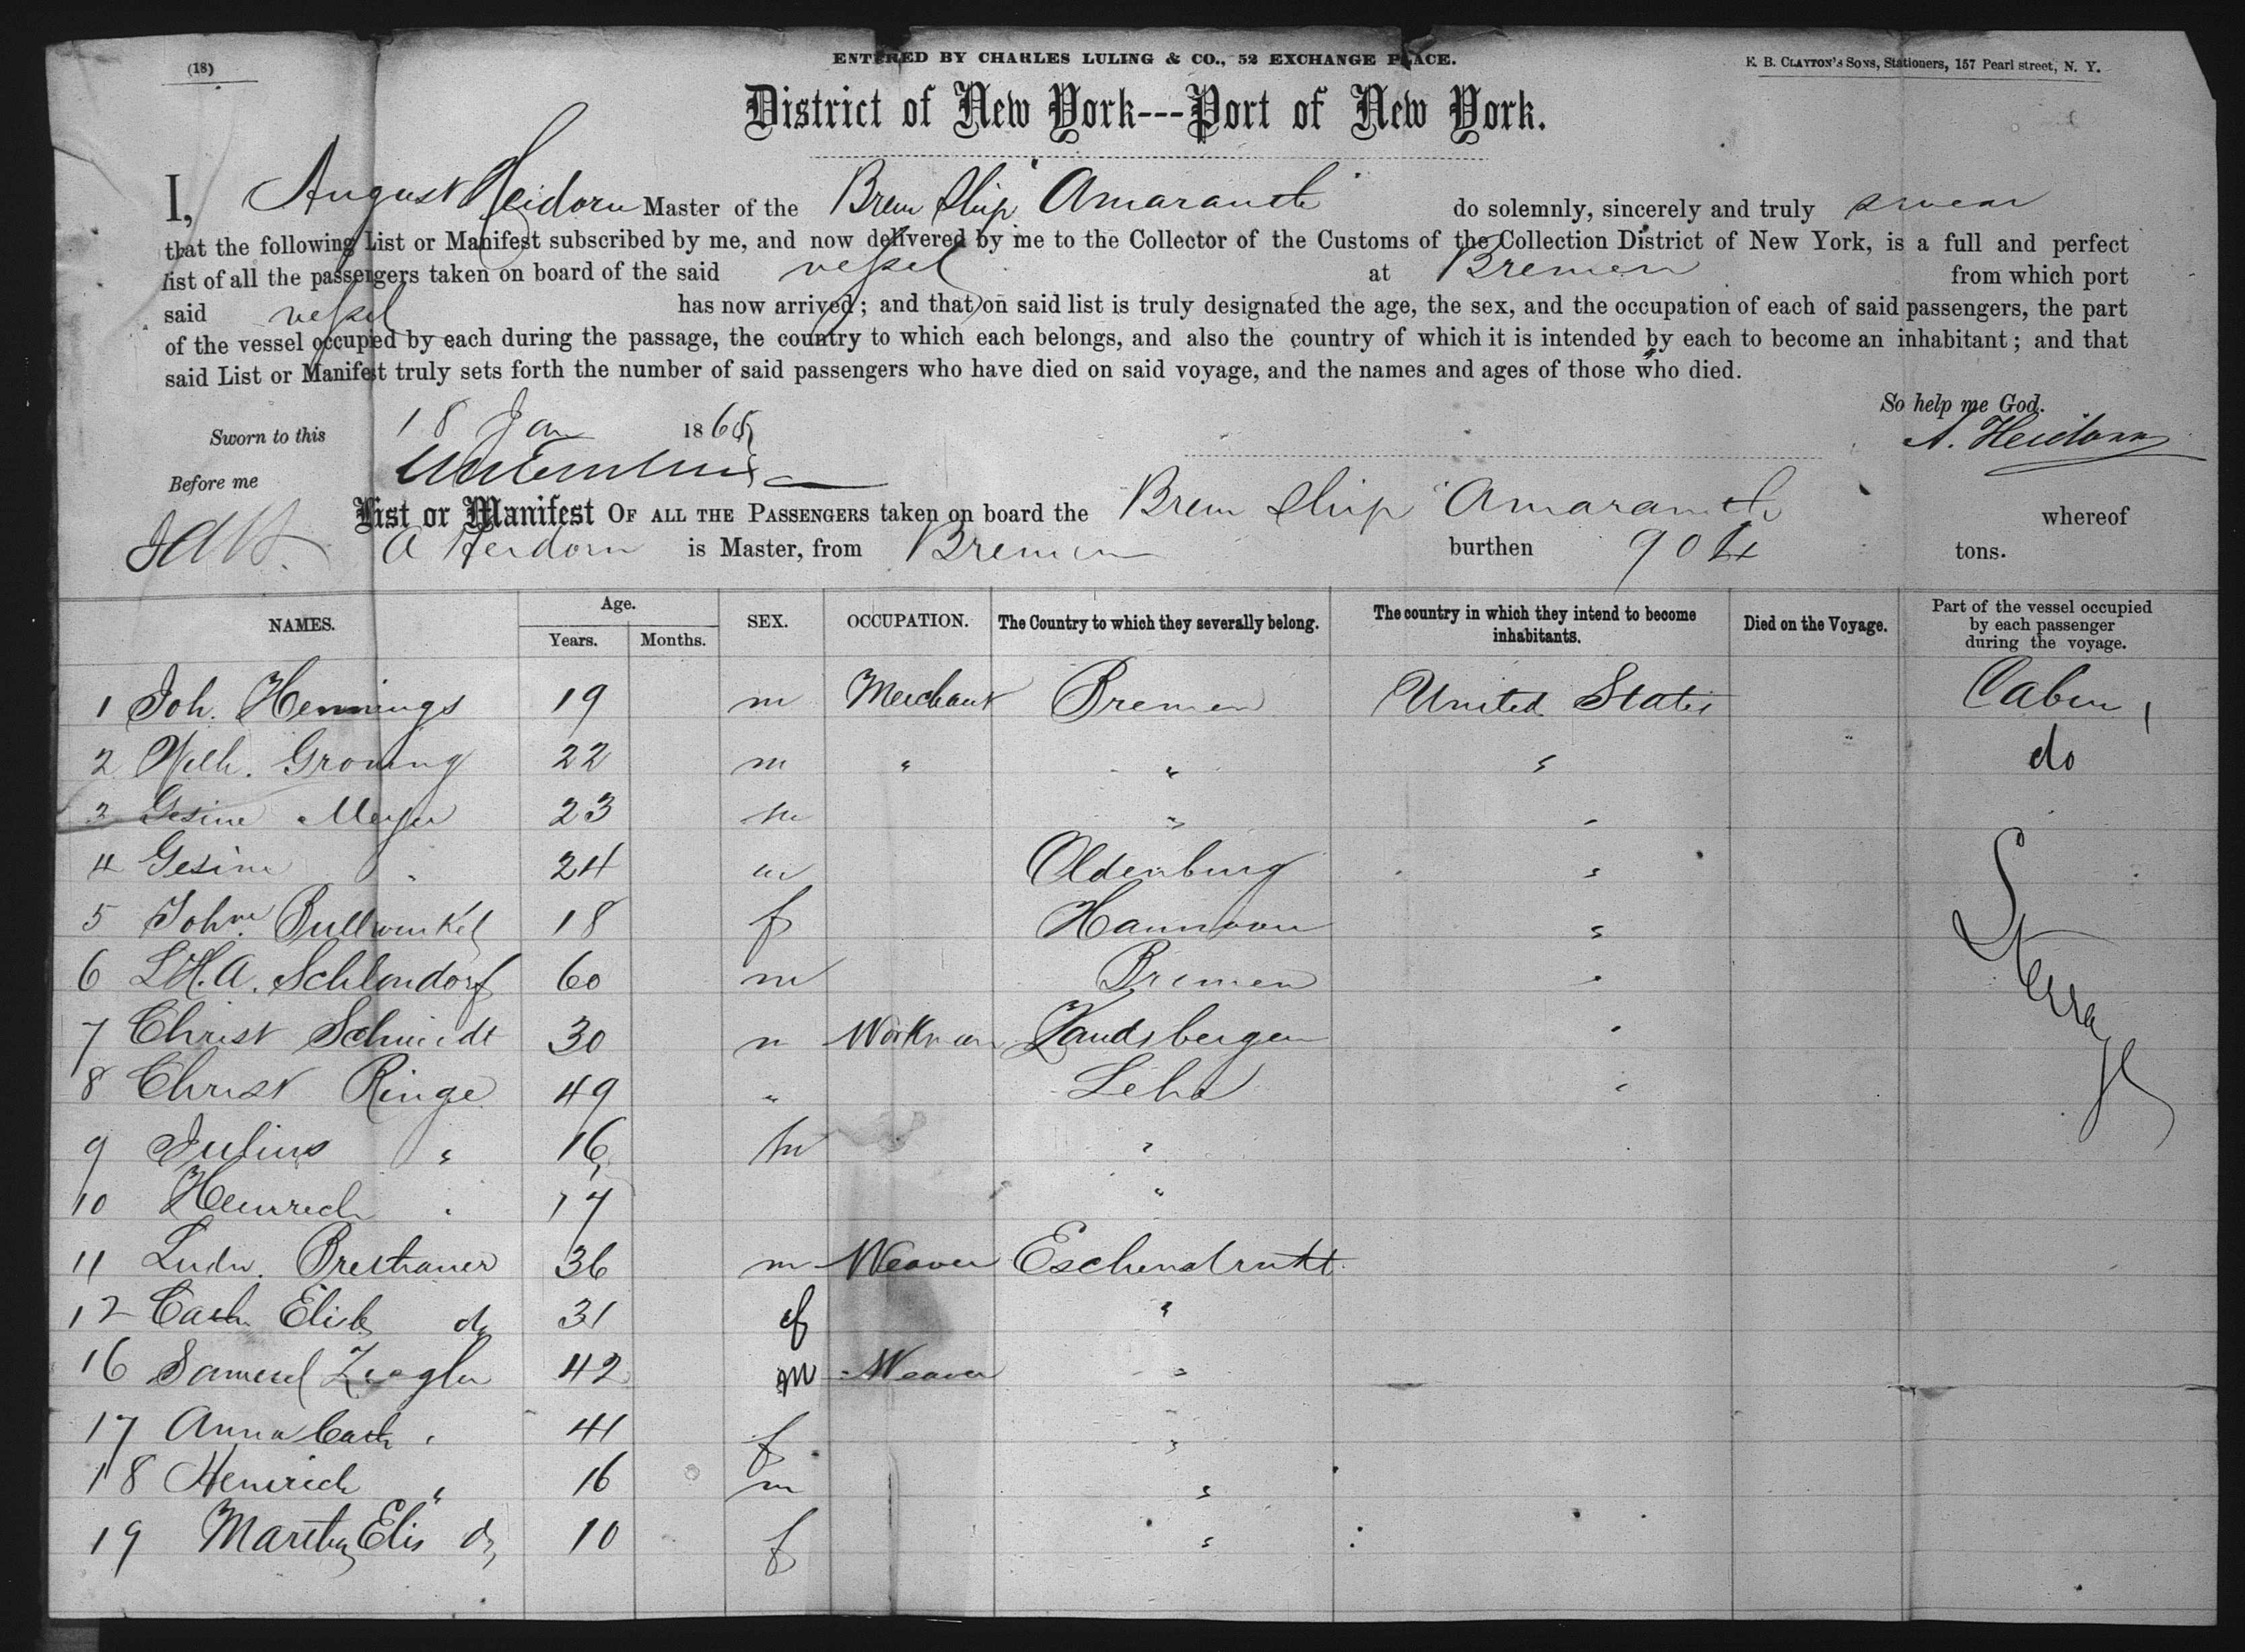 (18)
ENTERED BY CHARLES LULING & CO., 52 EXCHANGE PLACE.
E. B. CLAYTON'S SONS, Stationers, 157 Pearl street, N. Y.
District of New York---Port of New York.
I, August Heidorn Master of the Brem Ship "Amaranth" do solemnly, sincerely and truly swear
that the following List or Manifest subscribed by me, and now delivered by me to the Collector of the Customs of the Collection District of New York, is a full and perfect
list of all the passengers taken on board of the said vessel at Bremen from which port
said vessel has now arrived; and that on said list is truly designated the age, the sex, and the occupation of each of said passengers, the part
of the vessel occupied by each during the passage, the country to which each belongs, and also the country of which it is intended by each to become an inhabitant; and that
said List or Manifest truly sets forth the number of said passengers who have died on said voyage, and the names and ages of those who died.
So help me God.
Sworn to this 18 Jan 186
A. Heidorn
Before me
List or Manifest OF ALL THE PASSENGERS taken on board the Brem Ship "Amaranth whereof
A Heidorn is Master, from Bremen burthen 904 tons.
NAMES. Age. Years. Months. SEX. OCCUPATION. The Country to which they severally belong. The country in which they intend to become inhabitants. Died on the Voyage. Part of the vessel occupied by each passenger during the voyage.
1 Joh. Hennings 19 m Merchant Bremen United States Cabin
2 Wilh. Groning 22 m " " " do
3 Gesine Meyer 23 m " "
4 Gesine " 24 m Oldenburg "
5 Johne Bullwinkel 18 f Hannover "
6 L.H.A. Schlondorf 60 m Bremen "
7 Christ Schmidt 30 m Workman Landsbergen "
8 Christ Ringe 49 " Lehe "
9 Julius " 16 m "
10 Heinrich " 17 "
11 Ludw. Presthauer 36 m Weaver Eschenstruth
12 Cath. Elise do 31 f "
16 Samuel Ziegler 42 m Weaver "
17 Anna Cath " 41 f "
18 Heinrich " 16 m "
19 Martha Elis do 10 f "
Sterrage